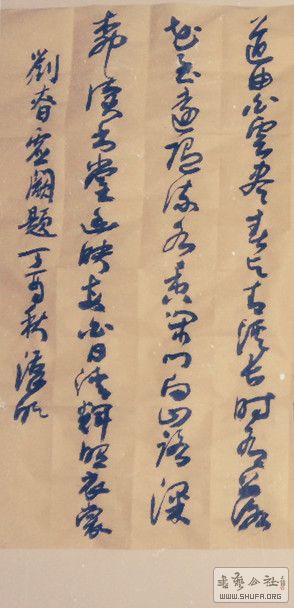 道由白雲盡春與青溪長時有落
花至遠隨流水香閑門向山路深
柳讀書堂幽映每白日清輝照衣裳
劉眘虛闕題丁秋
書藝公社
WWW.SHUFA.ORG